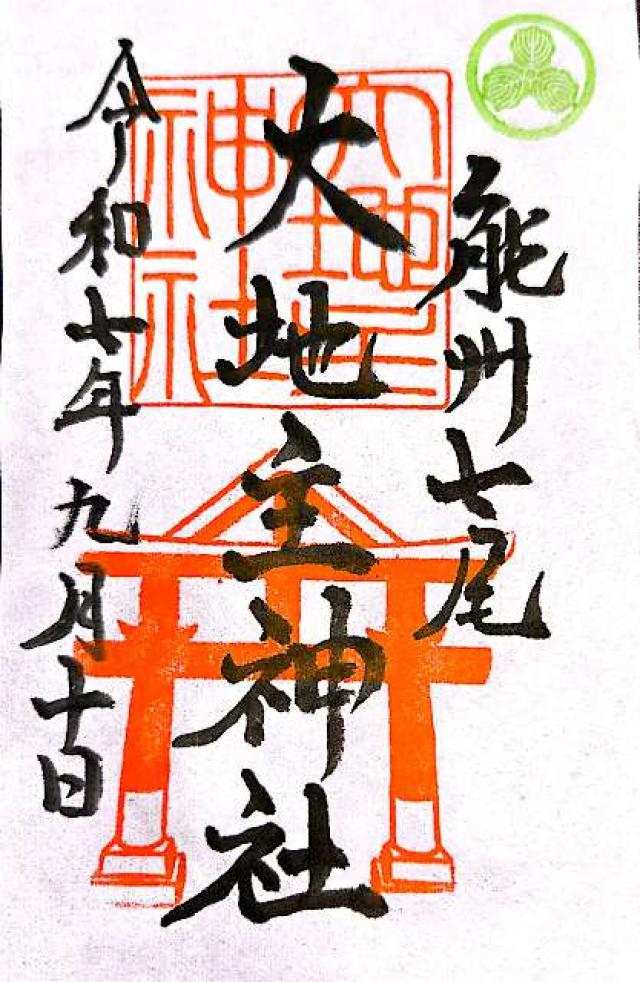 能州七尾
大地主神社
令和七年九月十日
大地主
神社